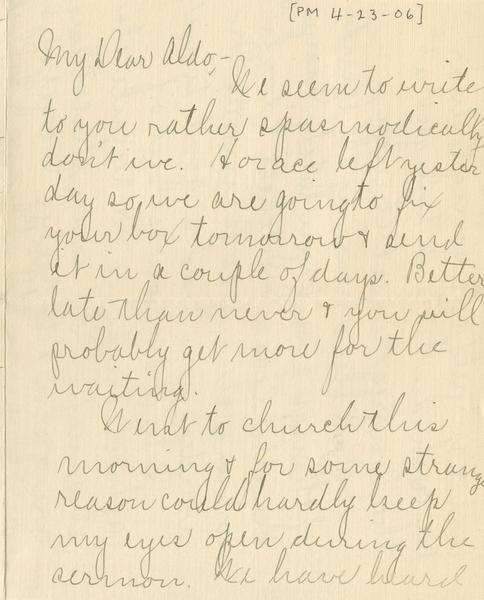 [PM 4-23-06]
My Dear Aldo,-
We seem to write
to you rather spasmodically
don't we. Horace left yester
day so, we are going to fix
your box tomorrow & send
it in a couple of days. Better
late than never & you will
probably get more for the
waiting.
Went to church this
morning & for some strange
reason could hardly keep
my eyes open during the
sermon. We have heard